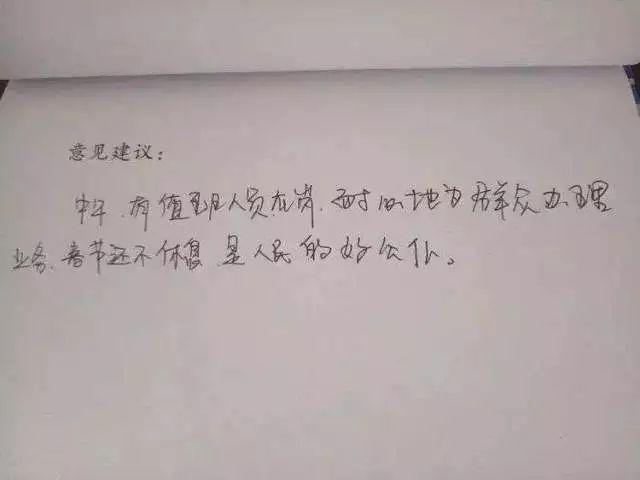 意见建议：
中午，有值班人员在岗，耐心地为群众办理
业务，春节还不休息，是人民的好公仆。